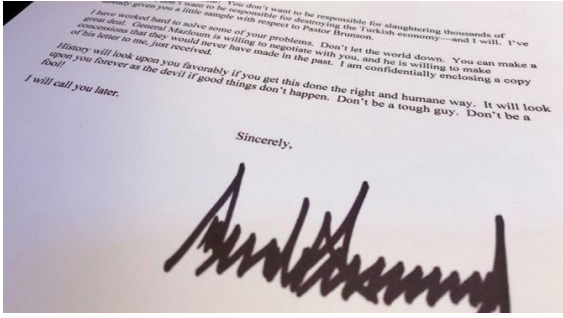 You don't want to be responsible for slaughtering thousands of
want to be responsible for destroying the Turkish economy—and I will. I've
already given you a little sample with respect to Pastor Brunson.
I have worked hard to solve some of your problems. Don't let the world down. You can make a
great deal. General Mazloum is willing to negotiate with you, and he is willing to make
concessions that they would never have made in the past. I am confidentially enclosing a copy
of his letter to me, just received.
History will look upon you favorably if you get this done the right and humane way. It will look
upon you forever as the devil if good things don't happen. Don't be a tough guy. Don't be a
fool!
I will call you later.
Sincerely,